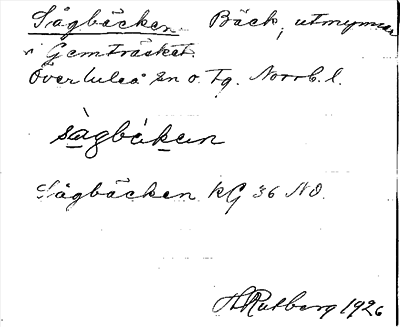 Sågbäcken. Bäck, utmynnar
i Gemträsket.
Överluleå sn o. Tg. Norrb. l.
sàgbäkən
Sågbäcken kG 36 NO.
H Rutberg 1926